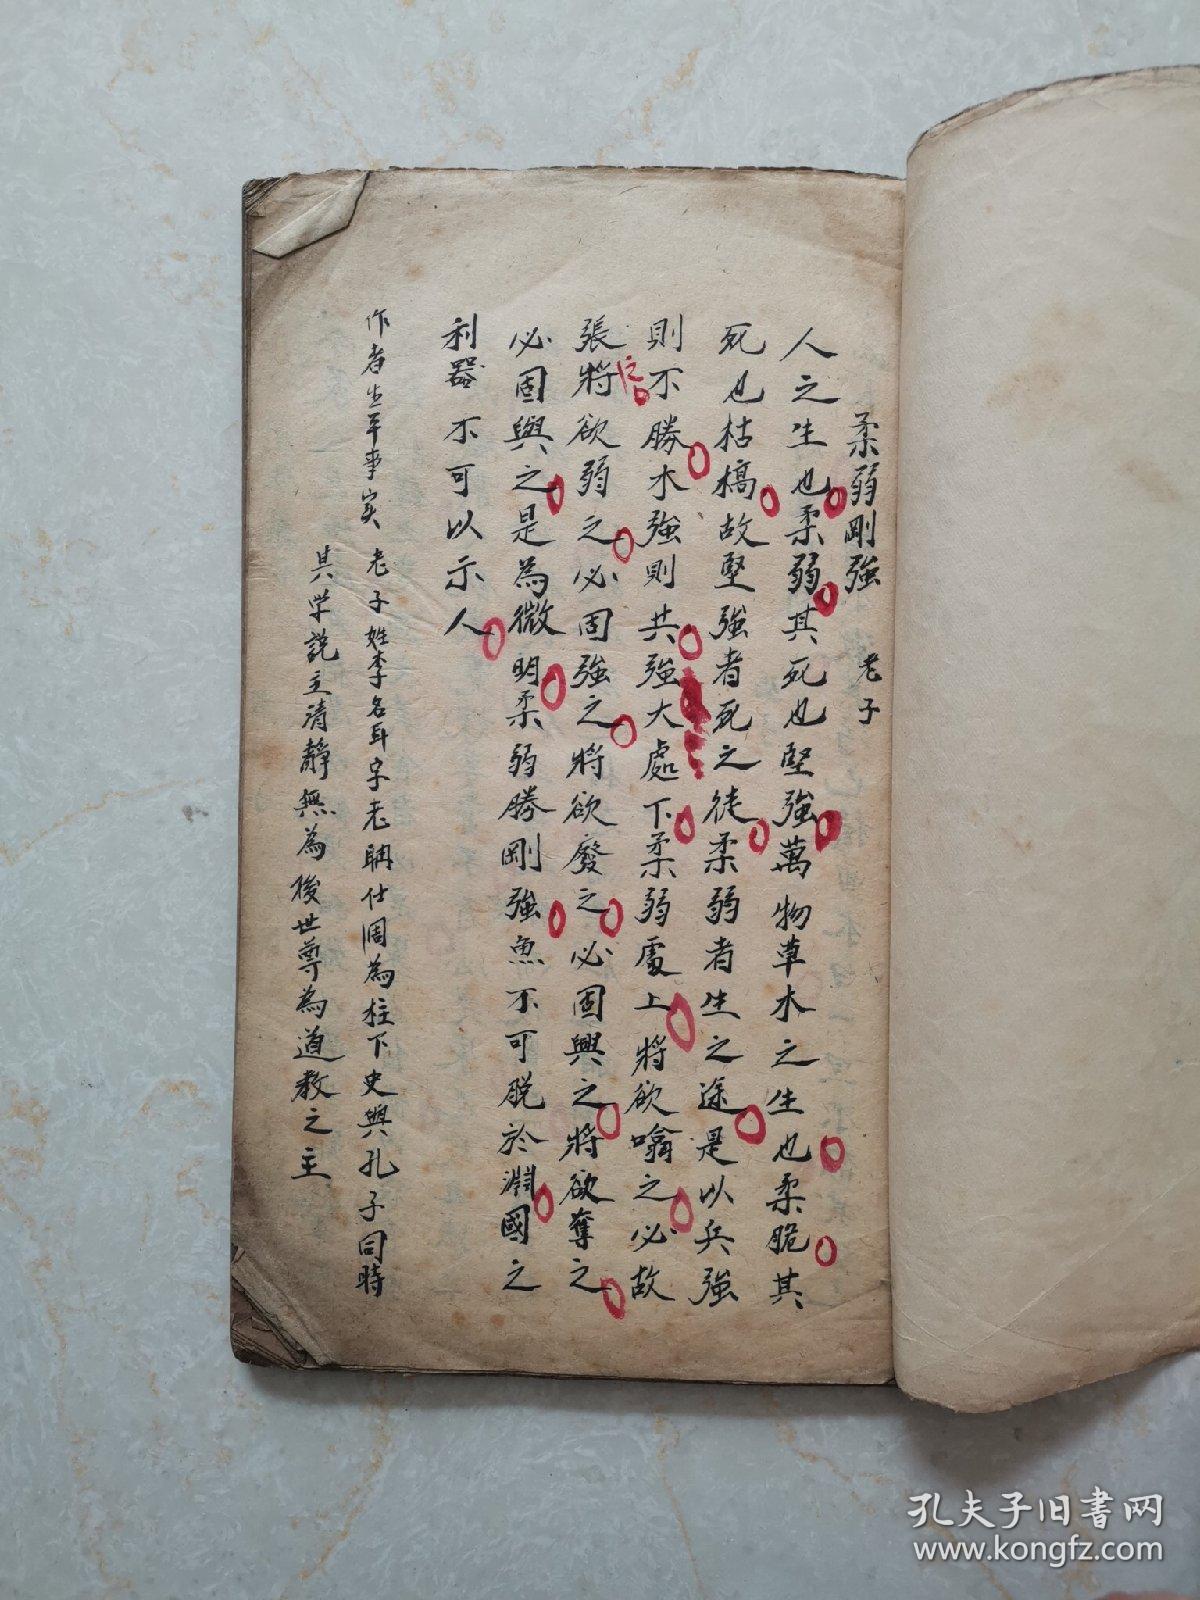 柔弱剛強 老子
人之生也柔弱其死也堅強萬物草木之生也柔脆其
死也枯槁故堅強者死之徒柔弱者生之途是以兵強
則不勝木強則共強大處下柔弱處上將欲噏之必故
張將欲弱之必固強之將欲廢之必固興之將欲奪之
必固與之是為微明柔弱勝剛強魚不可脫於淵國之
利器不可以示人
作者生平事实 老子姓李名耳字老聃仕周為柱下史與孔子同時
其学説主清靜無為後世尊為道教之主
孔夫子旧书网
www.kongfz.com